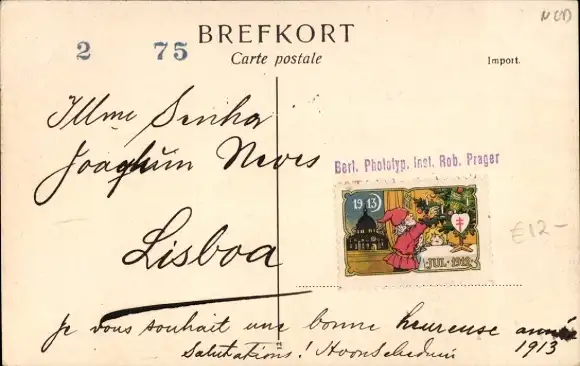 NCD
BREFKORT
2 75
Carte postale
Import.
Illme Senhor
Joaquim Neves
Berl. Phototyp. Inst. Rob. Prager
1913
Lisboa
€12-
JUL·1912
Je vous souhait une bonne heureuse année
Salutations! 1913